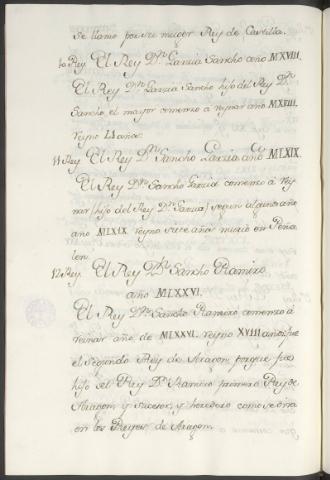 se llamo por su muger Rey de Castilla.
10 Rey. El Rey Dⁿ Garzia Sancho año MXVIII.
El Rey Dⁿ Garzia Sancho hijo del Rey Dⁿ
Sancho el mayor comenzo á reynar año MXVIII.
reyno LI años.
11 Rey. El Rey Dⁿ Sancho Garzia año MLXIX.
El Rey Dⁿ Sancho Garzia comenzo á rey
nar (hijo del Rey Dⁿ Garzia) segun
año MLXIX reyno siete años murio en Peña
len.
12 Rey. El Rey Dⁿ Sancho Ramirez
año MLXXVI.
El Rey Dⁿ Sancho Ramirez comenzo á
reinar año de MLXXVI. reyno XVIII años fue
el segundo Rey de Aragon, porque fue
hijo del Rey Dⁿ Ramiro primero Rey de
Aragon, y sucesor, y heredero como se dira
en los Reyes de Aragon.